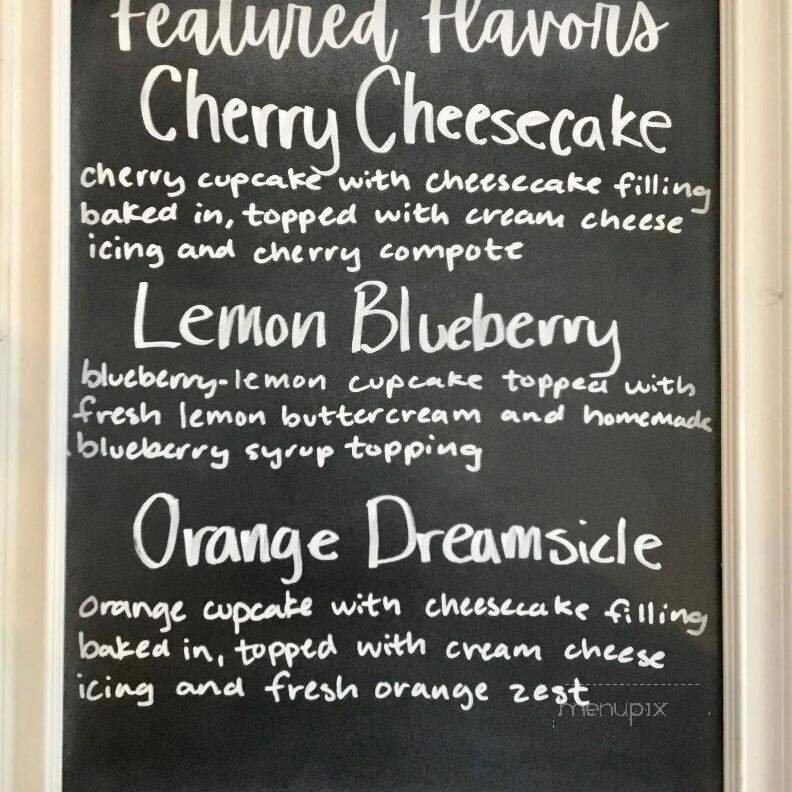 Featured Flavors
Cherry Cheesecake
cherry cupcake with cheesecake filling
baked in, topped with cream cheese
icing and cherry compote
Lemon Blueberry
blueberry-lemon cupcake topped with
fresh lemon buttercream and homemade
blueberry syrup topping
Orange Dreamsicle
orange cupcake with cheesecake filling
baked in, topped with cream cheese
icing and fresh orange zest
menupix